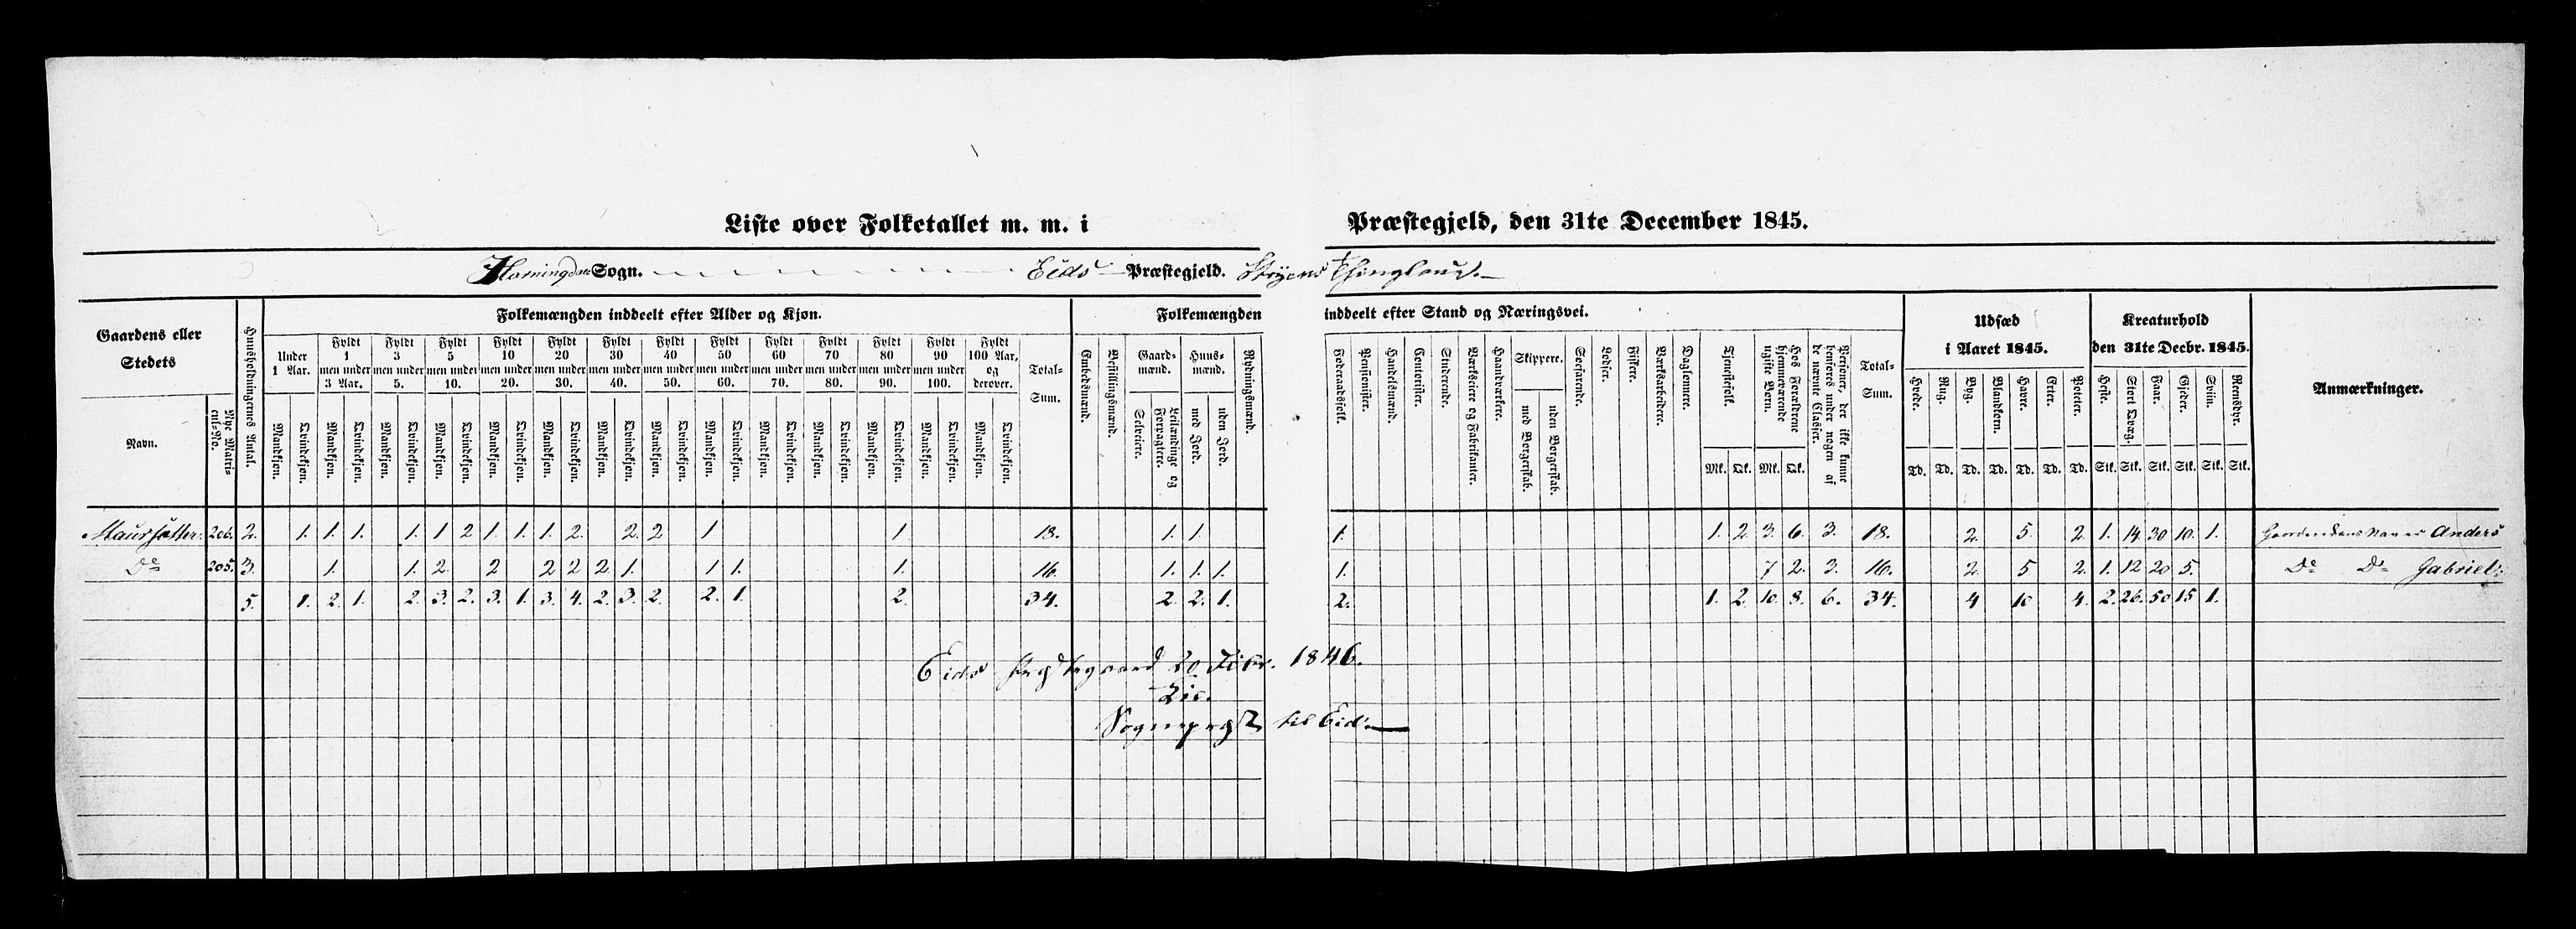 Liste over Folketallet m. m. i Præstegjeld, den 31te December 1845.
Sogn. Eids Præstegjeld. Thinglaug.
Gaardens eller Stedets
Navn.
Nye Matricul-No.
Huusholdningernes Antal.
Folkemængden inddeelt efter Alder og Kjøn.
Under 1 Aar.
Fyldt 1 men under 3 Aar.
Fyldt 3 men under 5.
Fyldt 5 men under 10.
Fyldt 10 men under 20.
Fyldt 20 men under 30.
Fyldt 30 men under 40.
Fyldt 40 men under 50.
Fyldt 50 men under 60.
Fyldt 60 men under 70.
Fyldt 70 men under 80.
Fyldt 80 men under 90.
Fyldt 90 men under 100.
Fyldt 100 Aar, og derover.
Mandkjøn. Qvindekjøn. Mandkjøn. Qvindekjøn. Mandkjøn. Qvindekjøn. Mandkjøn. Qvindekjøn. Mandkjøn. Qvindekjøn. Mandkjøn. Qvindekjøn. Mandkjøn. Qvindekjøn. Mandkjøn. Qvindekjøn. Mandkjøn. Qvindekjøn. Mandkjøn. Qvindekjøn. Mandkjøn. Qvindekjøn. Mandkjøn. Qvindekjøn. Mandkjøn. Qvindekjøn. Mandkjøn. Qvindekjøn.
Total-Sum.
Folkemængden inddeelt efter Stand og Næringsvei.
Embedsmænd.
Bestillingsmænd.
Gaardmænd.
Selveiere.
Leilændinge og Forpagtere.
Huusmænd.
med Jord.
uden Jord.
Rydningsmænd.
Føderaadsfolk.
Pensionister.
Handelsmænd.
Contorister.
Studerende.
Værkseiere og Fabrikanter.
Haandværkere.
Skippere.
med Borgerskab.
uden Borgerskab.
Søefarende.
Lodser.
Fiskere.
Værksarbeidere.
Daglønnere.
Tjenestefolk.
Mk. Qk.
Hos Forældrene hjemmeværende ugifte Børn.
Mk. Qk.
Personer, der ikke kunne henføres under nogen af de nævnte Classer.
Total-Sum.
Udsæd i Aaret 1845.
Hvede. Rug. Byg. Blandkorn. Havre. Erter. Poteter.
Td. Td. Td. Td. Td. Td. Td.
Kreaturhold den 31te Decbr. 1845.
Heste. Stort Qvæg. Faar. Gjeder. Sviin. Reensdyr.
Stk. Stk. Stk. Stk. Stk. Stk.
Anmærkninger.
206. 2. 1. 1. 1. 1. 1 2 1. 1. 1. 2. 2. 2 1 1 18. 1. 1. 1. 1. 2 3. 6. 3. 18. 2. 5. 2. 1. 14. 30 10. 1. Anders
Do 205. 3. 1. 1. 2. 2 2 2 2. 1. 1 1. 1. 16. 1. 1. 1. 1. 7 2. 3. 16. 2. 5 2. 1. 12 20 5. Do Do Gabriel.
5. 1. 2. 1. 2. 3. 2. 3. 1. 3. 4. 2. 3. 2. 2. 1. 2. 34. 2. 2. 1. 2. 1. 2. 10. 8. 6. 34. 4 10 4. 2. 26. 50 15 1.
Eids 20 Febr. 1846.
Sognepræst til Eid.